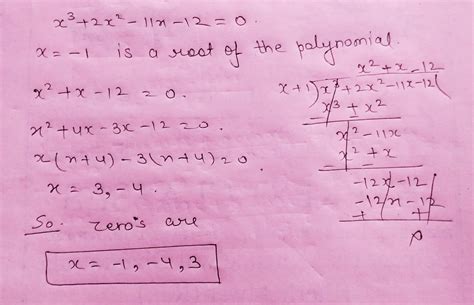 x³+2x²-11x-12=0.
x=-1 is a root of the polynomial.
x²+x-12=0.
x²+4x-3x-12=0.
x(x+4)-3(x+4)=0
x=3,-4.
So. zero's are
x=-1,-4,3
x²+x-12
x+1)x³+2x²-11x-12(
x³+x²
- -
x²-11x
x²+x
- -
-12x-12
-12x-12
+ +
0